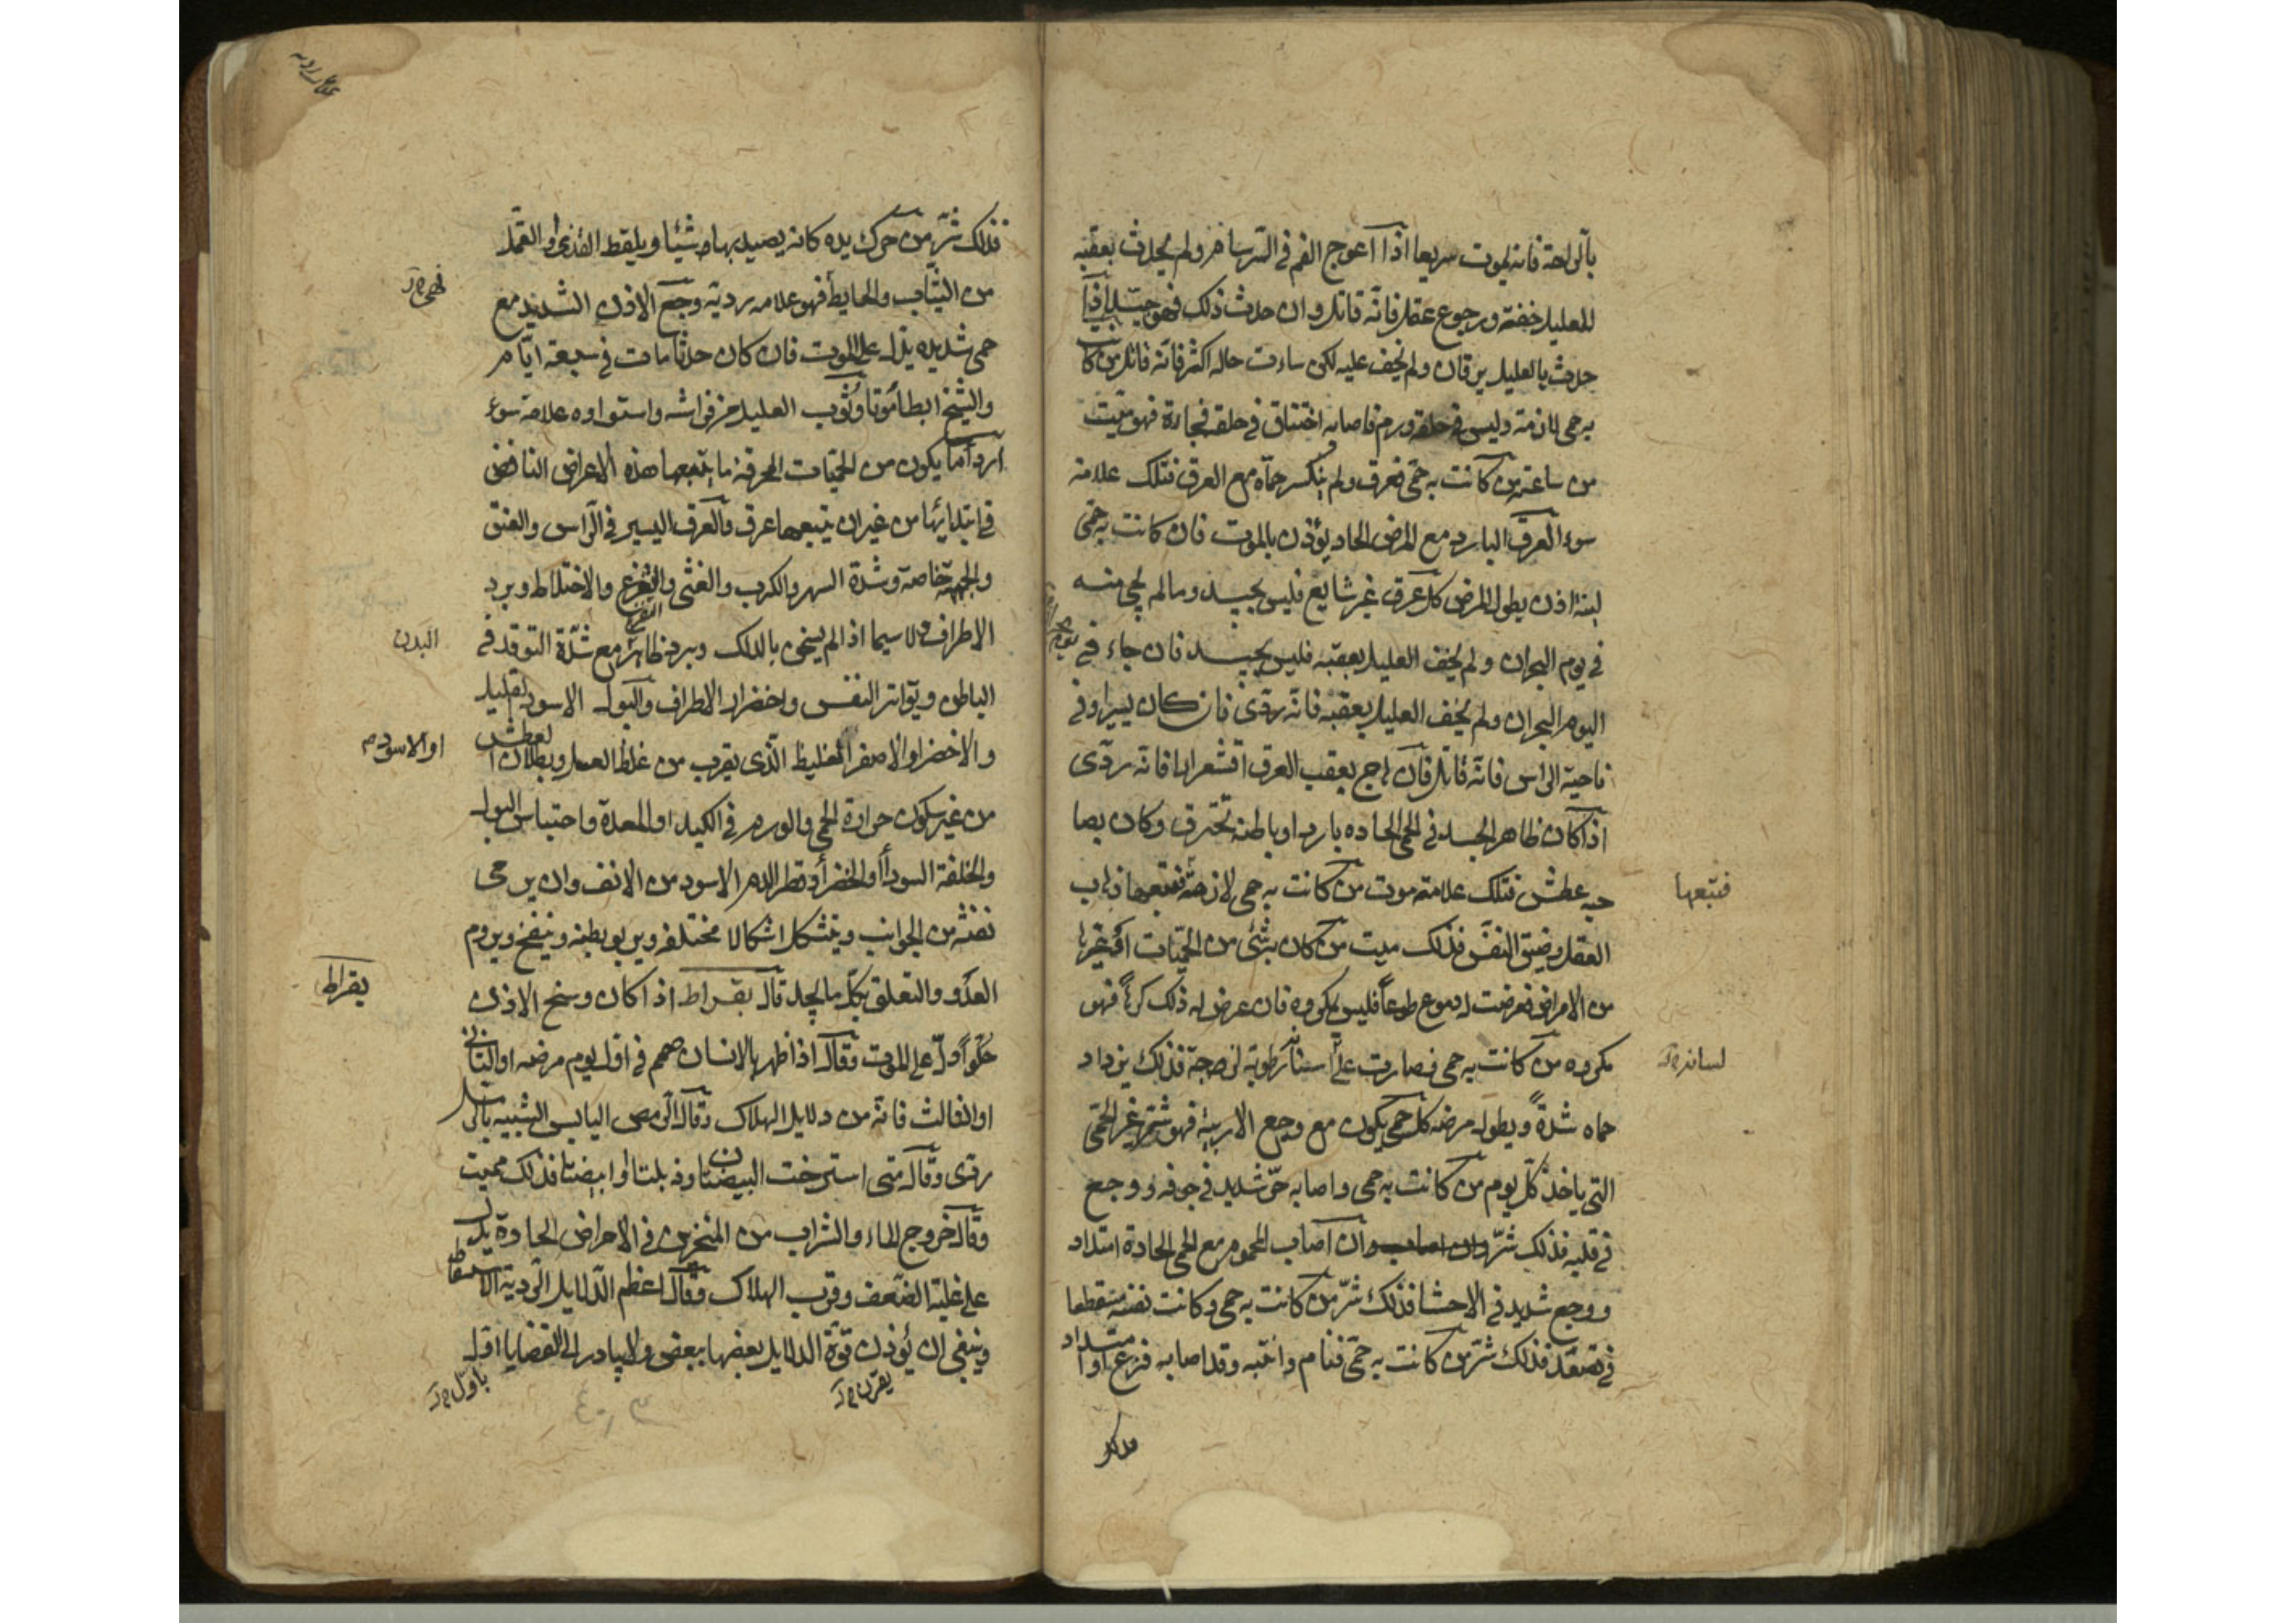 بالراحة فانه يموت سريعا اذا اعوج الفم فى السرسام ولم يحدث بعقبه
للعليل خفة ورجوع عقل فانه قاتل وان حدث ذلك فهو جيد اذا
حدث بالعليل يرقان ولم يخف عليه لكن ساءت حاله اكثر فانه قاتل من كا
به حمى لازمة وليس فى حلقه ورم فاصابه اختناق فى حلقه فجاءة فهو ميت
من ساعته من كانت به حمى فعرق ولم ينكسر حماه مع العرق فتلك علامة
سوء العرق البارد مع المرض الحاد يؤذن بالموت فان كانت به حمى
لينة اذن بطول المرض كل عرق غير شايع فليس بجيد ومالم يجى منه
فى يوم البحران ولم يخف العليل بعقبه فليس بجيد فان جاء فى
اليوم البحران ولم يخف العليل بعقبه فانه ردى فان كان يسيرا وفى
ناحية الراس فانه قاتل فان هاج بعقب العرق اقشعرارا فانه ردى
اذا كان ظاهر الجسد فى الحمى الحاده باردا وباطنه تحترق وكان بصا
حبه عطش فتلك علامة موت من كانت به حمى لازمة فتبعها ذهاب
فتبعها
العقل وضيق النفس فذلك ميت من كان به شئ من الحميات او غيرها
من الامراض فعرضت له دموع طوعا فليس بمكروه فان عرض له ذلك كرها فهو
مكروه من كانت به حمى فصارت على اسنانه رطوبة لزجة فذلك يزداد
لسانه
حماه شدة ويطول مرضه كل حمى يكون مع وجع الاربية فهو شر غير الحمى
التى ياخذ كل يوم من كانت به حمى واصابه حر شديد فى جوفه ووجع
فى قلبه فذلك شر وان اصاب المحموم مع الحمى الحادة امتداد
ووجع شديد فى الاحشا فذلك شر من كانت به حمى وكانت نفسه متقطعا
فى تصعد فذلك شر من كانت به حمى فنام وانتبه وقد اصابه فزع او امتداد
فذلك
فذلك شر من حرك يده كانه يصيد بها شيئا ويلقط القذى او القمل
من الثياب والحايط فهو علامة ردية وجع الاذن الشديد مع
حمى شديده يدل على الموت فان كان حدثا مات فى سبعة ايام
والشيخ ابطأ موتا وثوب العليل من فراشه واستواوه علامة سوء
اردأ ما يكون من الحميات المحرقة ما يتبعها هذه الاعراض النافض
فى ابتدايها من غير ان يتبعها عرق والعرق اليسير فى الراس والعنق
والجبهة خاصة وشدة السهر والكرب والغثى والتفزع والاختلاط وبرد
الاطراف ولا سيما اذا لم يسخن بالدلك وبرد ظاهر مع شدة التوقد فى
البدن
الباطن وتواتر النفس واخضرار الاطراف والبول الاسود القليل
والاخضر او الاصفر الغليظ الذى يقرب من غلظ العسل وبطلان العطش
او الاسود
من غير سكون حرارة الحمى والورم فى الكبد او المعدة واحتباس البول
والخلفة السوداء او الخضراء او قطر الدم الاسود من الانف وان يرمى
نفسه من الجوانب ويتشكل اشكالا مختلفة ويربو بطنه وينتفخ ويروم
العدو والتعلق بكل ما يجد قال بقراط اذا كان وسخ الاذن
بقراط
حلوا دل على الموت وقال اذا ظهر بالانسان صمم فى اول يوم مرضه او الثانى
او الثالث فانه من دلايل الهلاك وقال الرمص اليابس الشبيه
ردى وقال متى استرخت البيضتان وذبلتا او ابيضتا فذلك مميت
وقال خروج الماء والشراب من المنخرين فى الامراض الحادة يدل
على غلبة الضعف وقرب الهلاك وقال اعظم الدلايل الردية
وينبغى ان يؤذن قوة الدلايل بعضها ببعض ولا يبادر الى القضايا اول
يقرن
باول